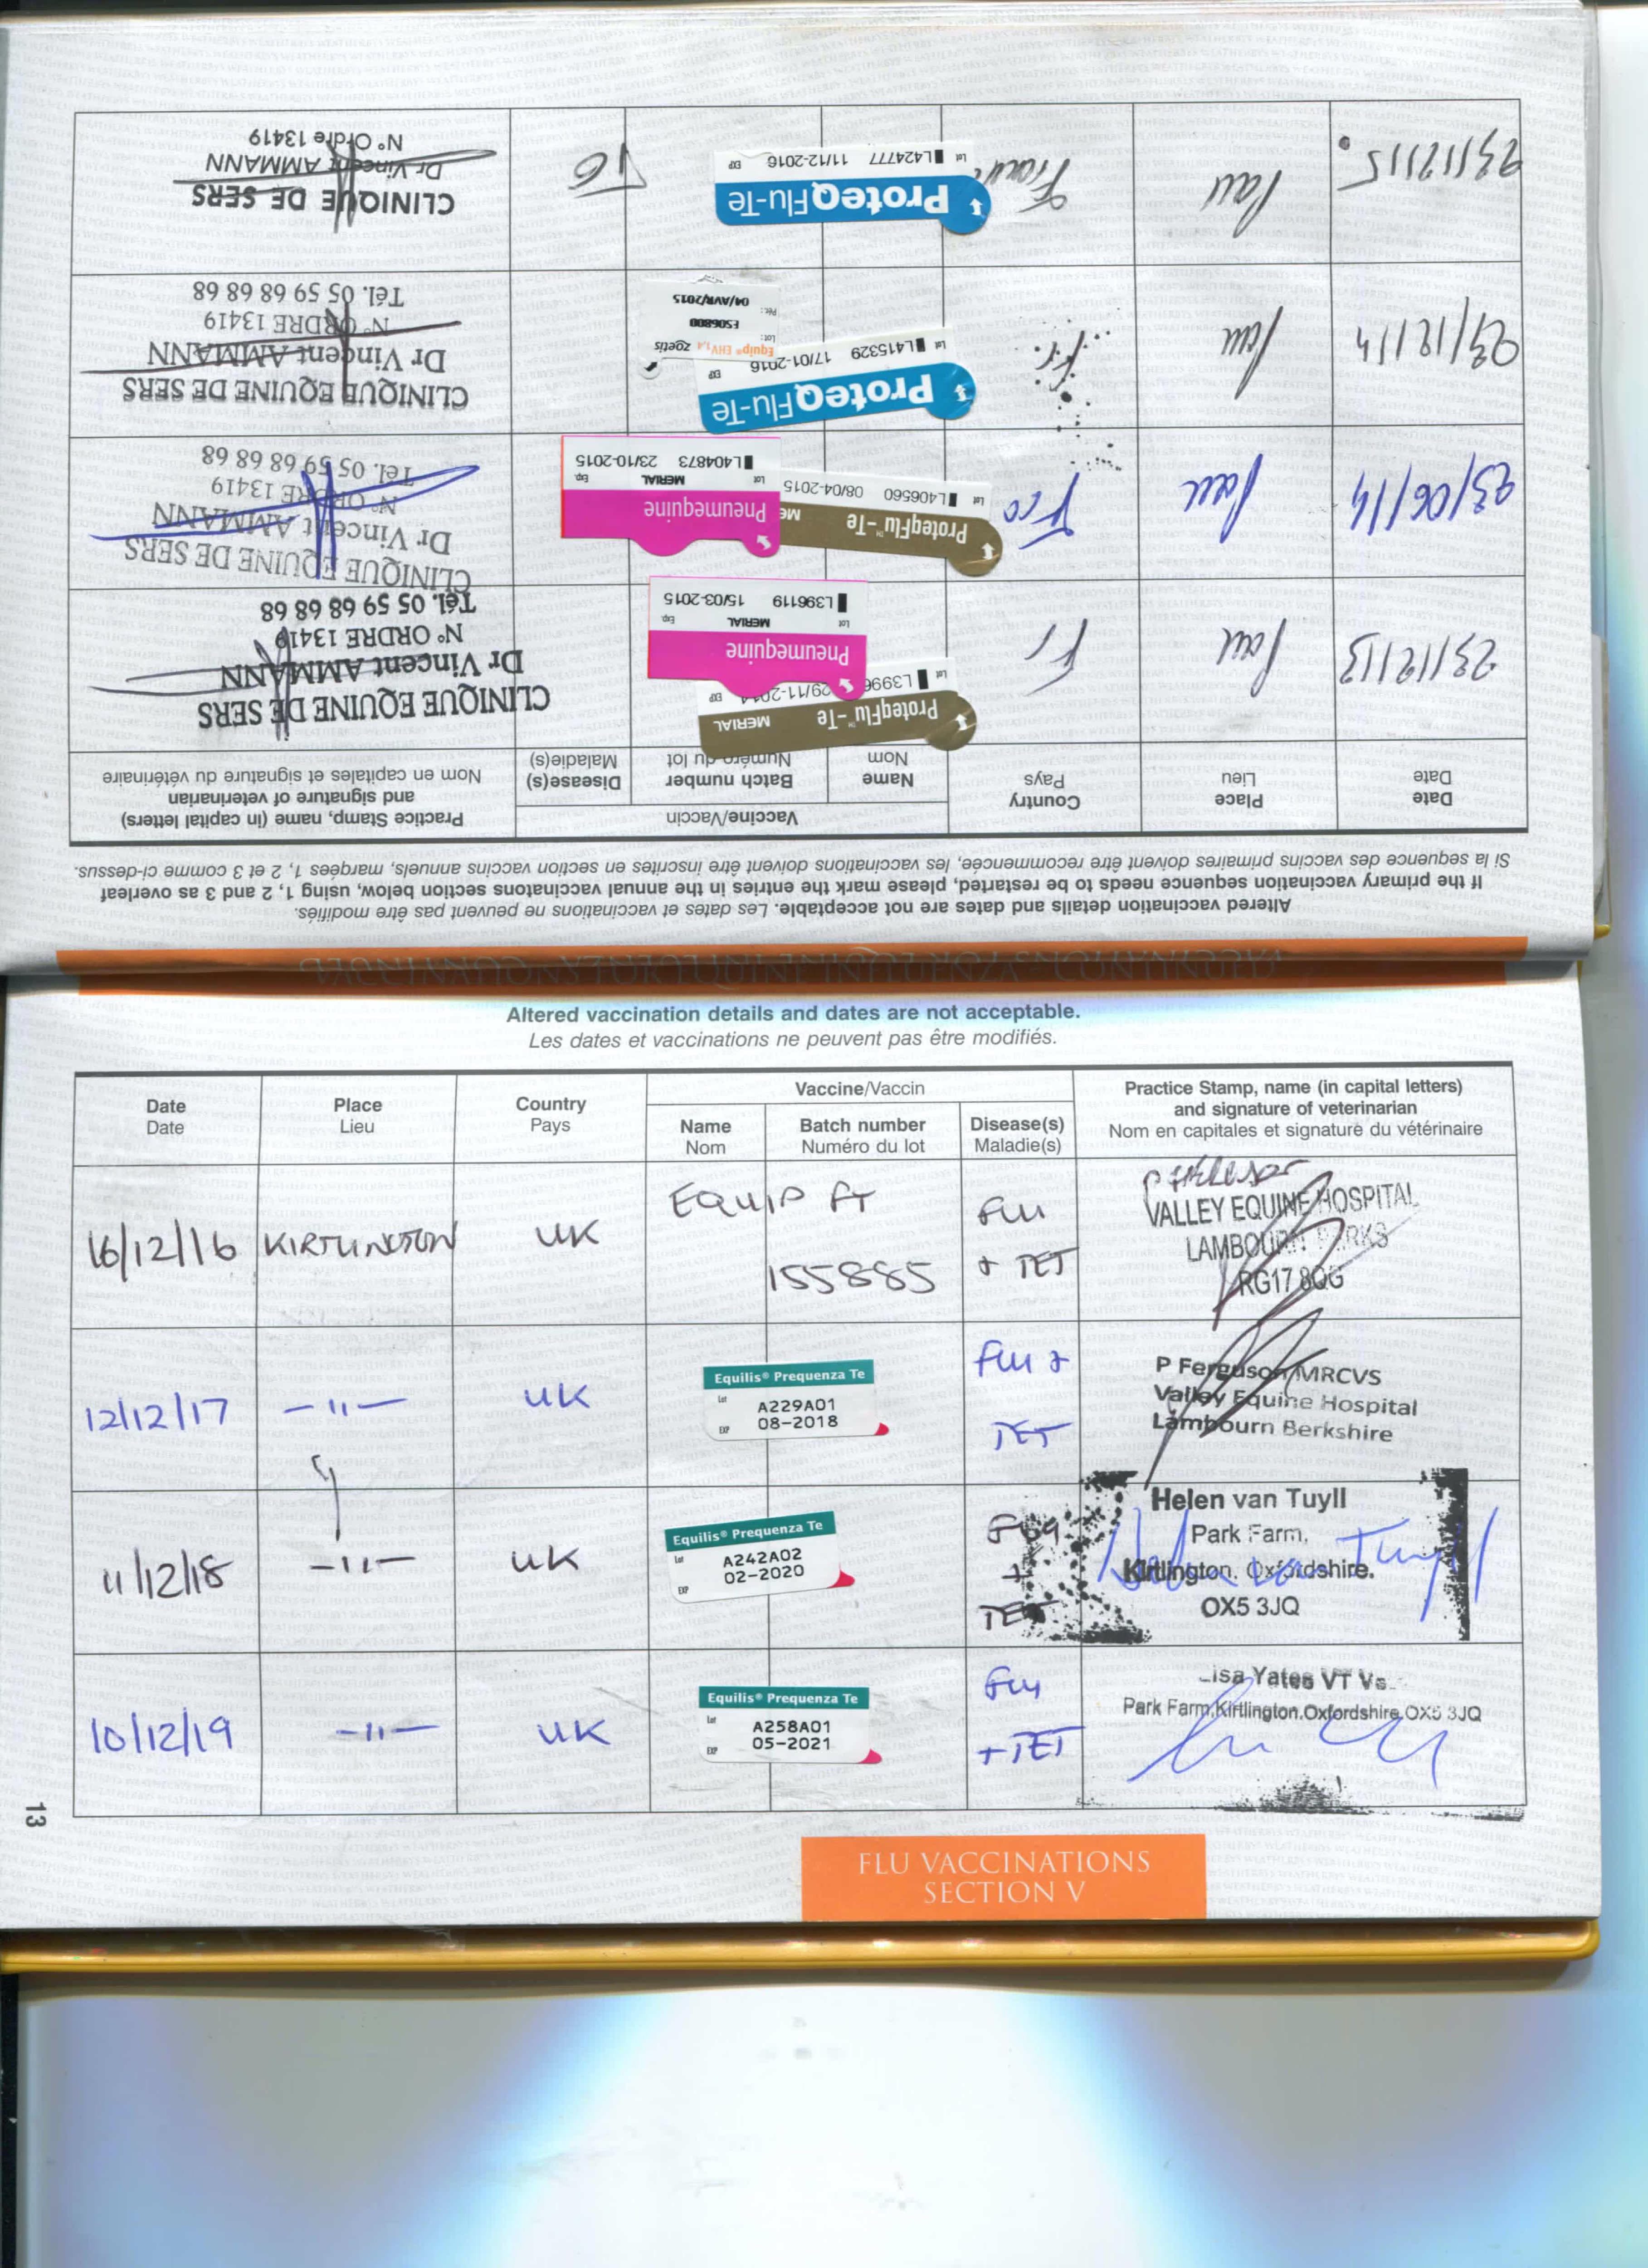 VACCINATIONS FOR EQUINE INFLUENZA - CONTINUED
Altered vaccination details and dates are not acceptable. Les dates et vaccinations ne peuvent pas être modifiés.
If the primary vaccination sequence needs to be restarted, please mark the entries in the annual vaccinatons section below, using 1, 2 and 3 as overleaf
Si la sequence des vaccins primaires doivent être recommencée, les vaccinations doivent être inscrites en section vaccins annuels, marqées 1, 2 et 3 comme ci-dessus.
Date
Date
Place
Lieu
Country
Pays
Vaccine/Vaccin
Name
Nom
Batch number
Numéro du lot
Disease(s)
Maladie(s)
Practice Stamp, name (in capital letters)
and signature of veterinarian
Nom en capitales et signature du vétérinaire
23/12/13
Pau
Fr
ProteqFlu™-Te
MERIAL
Lot L3996
EXP 29/11-2014
Pneumequine
MERIAL
Lot L396119
Exp 15/03-2015
CLINIQUE EQUINE DE SERS
Dr Vincent AMMANN
N° ORDRE 13419
Tél. 05 59 68 68 68
23/06/14
Pau
ProteqFlu™-Te
Lot L406560 08/04-2015
Pneumequine
MERIAL
Lot L404873
Exp 23/10-2015
CLINIQUE EQUINE DE SERS
Dr Vincent AMMANN
N° ORDRE 13419
Tél. 05 59 68 68 68
23/12/14
Pau
Fr.
ProteqFlu-Te
Lot L415329
EXP 17/01-2016
Equip® EHV1,4 zoetis
Lot:
Pér.:
04/AVR/2015
CLINIQUE EQUINE DE SERS
Dr Vincent AMMANN
N° ORDRE 13419
Tél. 05 59 68 68 68
23/12/15
Pau
France
ProteqFlu-Te
Lot L424777
EXP 11/12-2016
CLINIQUE DE SERS
Dr Vincent AMMANN
N° Ordre 13419
Altered vaccination details and dates are not acceptable.
Les dates et vaccinations ne peuvent pas être modifiés.
Date
Date
Place
Lieu
Country
Pays
Vaccine/Vaccin
Name
Nom
Batch number
Numéro du lot
Disease(s)
Maladie(s)
Practice Stamp, name (in capital letters)
and signature of veterinarian
Nom en capitales et signature du vétérinaire
16/12/16
KIRTLINGTON
UK
EQUIP FT
155885
Flu
+ TET
P FERGUSON
VALLEY EQUINE HOSPITAL
LAMBOURN BERKS
RG17 8QG
12/12/17
-"-
UK
Equilis® Prequenza Te
Lot A229A01
EXP 08-2018
Flu +
TET
P Ferguson MRCVS
Valley Equine Hospital
Lambourn Berkshire
11/12/18
-"-
UK
Equilis® Prequenza Te
Lot A242A02
EXP 02-2020
Flu
+
TET
Helen van Tuyll
Park Farm,
Kirtlington, Oxfordshire.
OX5 3JQ
10/12/19
-"-
UK
Equilis® Prequenza Te
Lot A258A01
EXP 05-2021
Flu
+ TET
Lisa Yates VT Vs
Park Farm,Kirtlington,Oxfordshire,OX5 3JQ
13
FLU VACCINATIONS
SECTION V